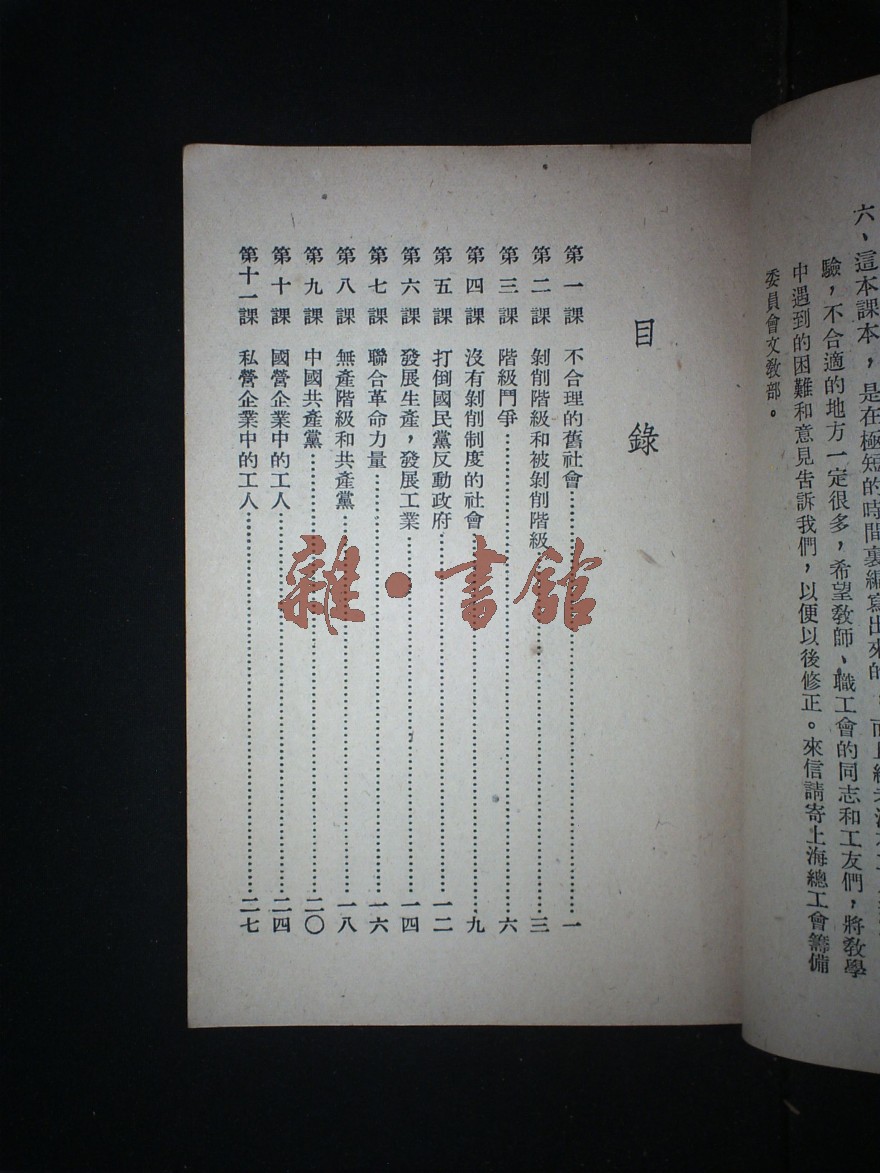 六、這本課本，是在極短的時間裏編寫出來的，而且
驗，不合適的地方一定很多，希望敎師、職工會的同志和工友們，將敎學
中遇到的困難和意見告訴我們，以便以後修正。來信請寄上海總工會籌備
委員會文敎部。
目錄
第一課 不合理的舊社會…………一
第二課 剝削階級和被剝削階級…………三
第三課 階級鬥爭…………六
第四課 沒有剝削制度的社會…………九
第五課 打倒國民黨反動政府…………一二
第六課 發展生產，發展工業…………一四
第七課 聯合革命力量…………一六
第八課 無產階級和共產黨…………一八
第九課 中國共產黨…………二〇
第十課 國營企業中的工人…………二四
第十一課 私營企業中的工人…………二七
雜·書館